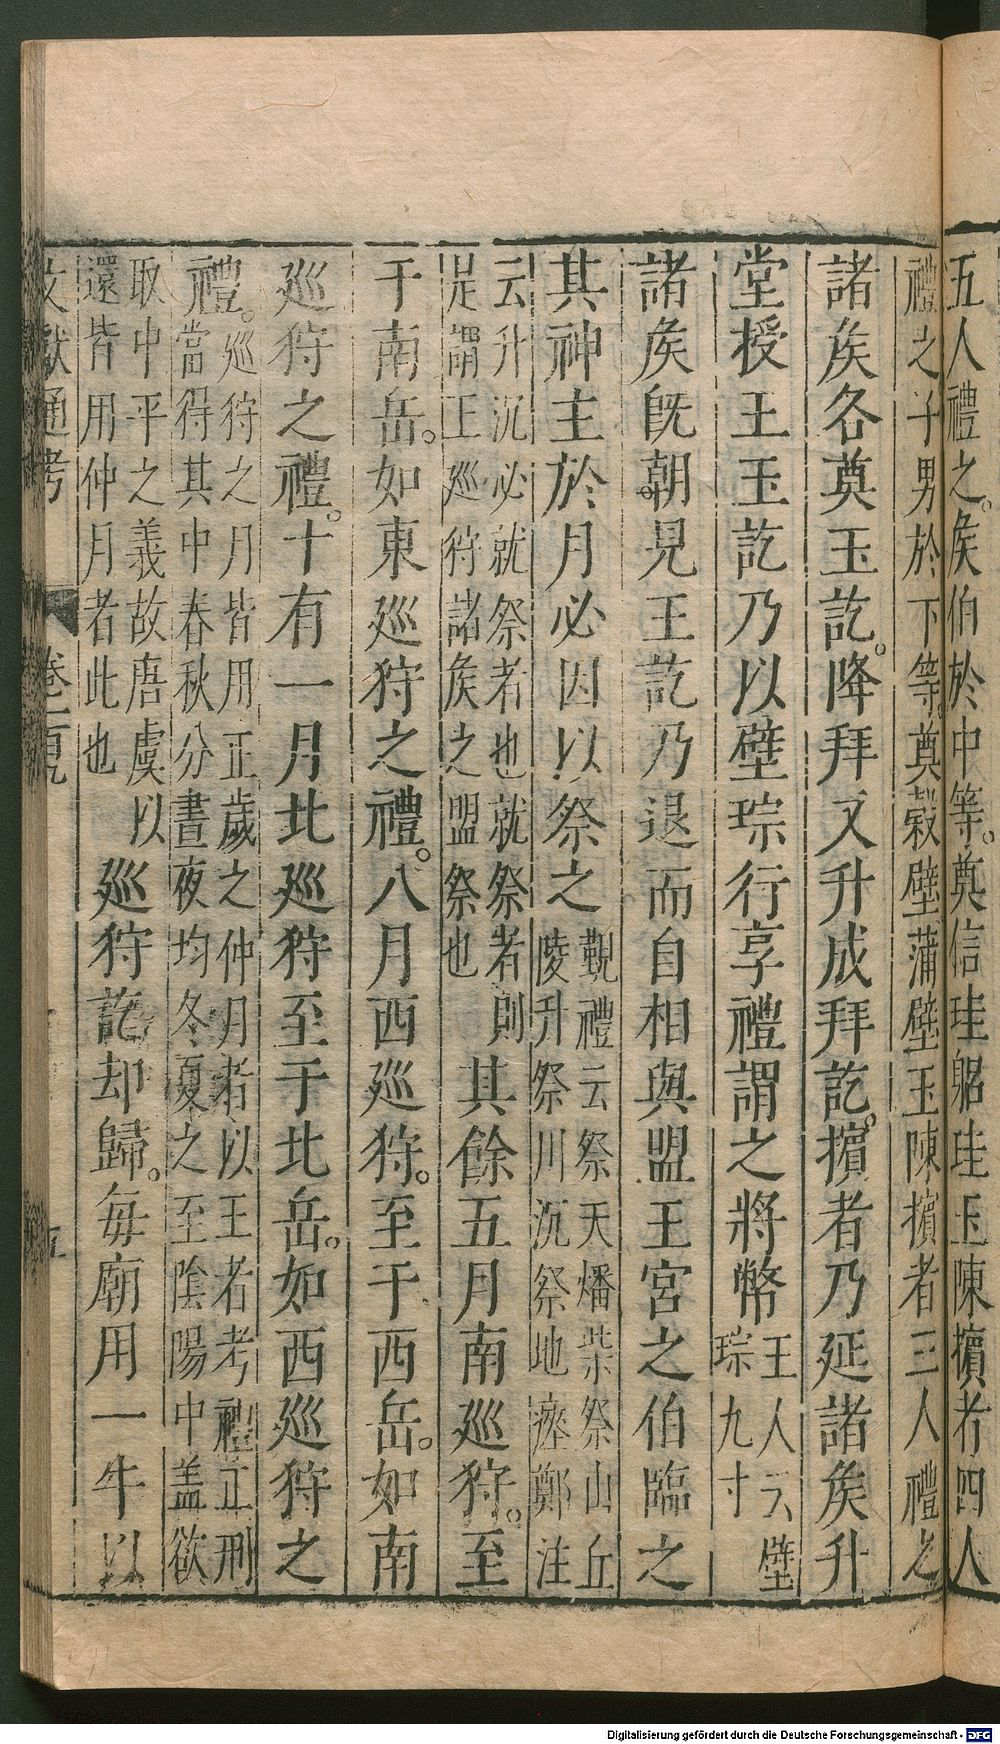 五人禮之。矦伯於中等。奠信珪躳珪玉陳擯者四人
禮之子男於下等。奠穀璧蒲璧玉陳擯者三人禮之
諸矦各奠玉訖。降拜又升成拜訖。擯者乃延諸矦升
堂授王玉訖乃以璧琮行享禮謂之將幣
玉人云璧
琮九寸
諸矦旣朝。見王訖乃退而自相與盟王宮之伯臨之
其神主於月必因以祭之
覲禮云祭天燔柴祭山丘
陵升祭川沉祭地瘞鄭注
云升沉必就祭者也就祭者則
是謂王巡狩諸矦之盟祭也
其餘五月南巡狩。至
于南岳。如東巡狩之禮。八月西巡狩。至于西岳。如南
巡狩之禮。十有一月北巡狩至于北岳。如西巡狩之
禮。
巡狩之月皆用正歲之仲月者以王者考禮正刑
當得其中春秋分晝夜均冬夏之至陰陽中盖欲
取中平之義故唐虞以
還皆用仲月者此也
巡狩訖却歸。每廟用一牛以
文獻通考
卷一百九
五
Digitalisierung gefördert durch die Deutsche Forschungsgemeinschaft - DFG